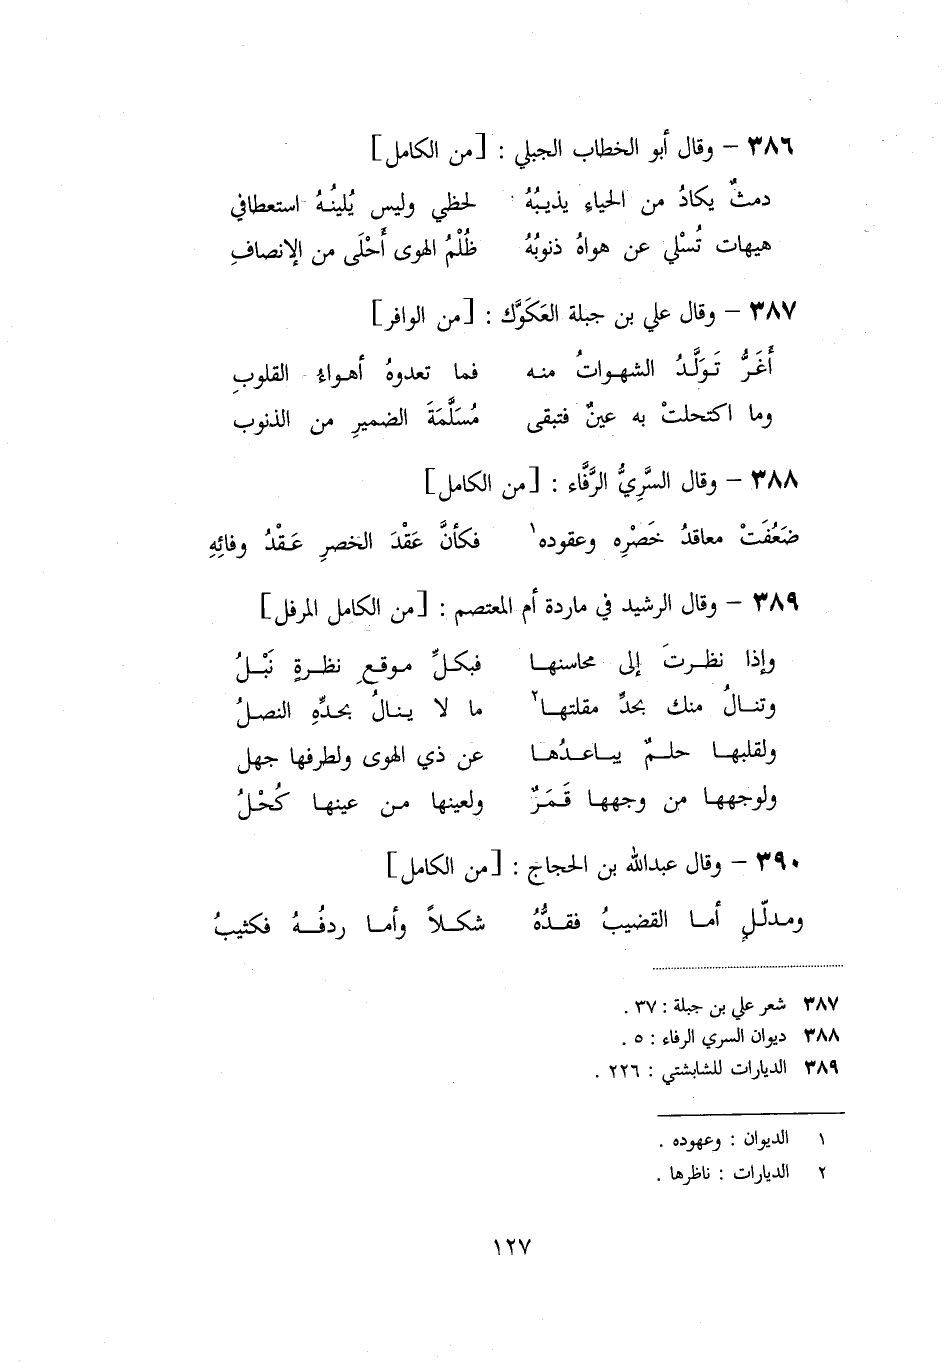 ٣٨٦ – وقال أبو الخطاب الجبلي : [من الكامل]
دمثٌ يكادُ من الحياءِ يذيبُهُ لحظي وليس يُلينُهُ استعطافي
هيهات تُسْلي عن هواهُ ذنوبُهُ ظُلْمُ الهوى أَحْلَى من الإنصافِ
٣٨٧ – وقال علي بن جبلة العَكَوَّك : [من الوافر]
أَغَرُّ تَوَلَّدُ الشهواتُ منه فما تعدوهُ أهواءُ القلوبِ
وما اكتحلتْ به عينٌ فتبقى مُسَلَّمَةَ الضميرِ من الذنوب
٣٨٨ – وقال السَّرِيُّ الرَّفَّاء : [من الكامل]
ضَعُفَتْ معاقدُ خَصْرِه وعقوده١ فكأنَّ عَقْدَ الخصرِ عَقْدُ وفائِهِ
٣٨٩ – وقال الرشيد في ماردة أم المعتصم : [من الكامل المرفل]
وإذا نظرتَ إلى محاسنها فبكلِّ موقعِ نظرةٍ نَبْلُ
وتنالُ منك بحدِّ مقلتها٢ ما لا ينالُ بحدِّهِ النصلُ
ولقلبها حلمٌ يباعدُها عن ذي الهوى ولطرفها جهل
ولوجهها من وجهها قَمَرٌ ولعينها من عينها كُحْلُ
٣٩٠ – وقال عبدالله بن الحجاج : [من الكامل]
ومدلّلٍ أما القضيبُ فقدُّهُ شكلاً وأما ردفُهُ فكثيبُ
٣٨٧ شعر علي بن جبلة : ٣٧ .
٣٨٨ ديوان السري الرفاء : ٥ .
٣٨٩ الديارات للشابشتي : ٢٢٦ .
١ الديوان : وعهوده .
٢ الديارات : ناظرها .
١٢٧